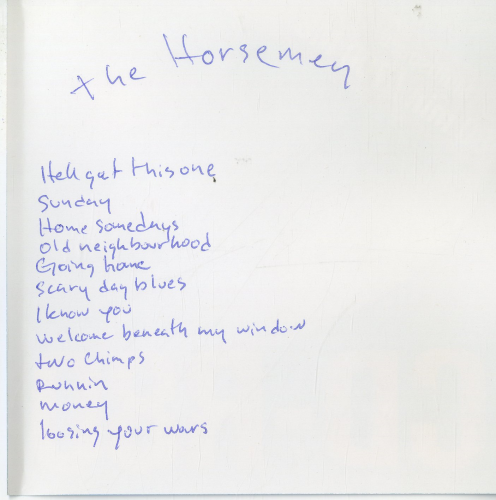 the Horsemen
Hell gat this one
Sunday
Home somedays
Old neighbourhood
Going home
Scary day blues
I know you
welcome beneath my window
two Chimps
Runnin
money
loosing your wars